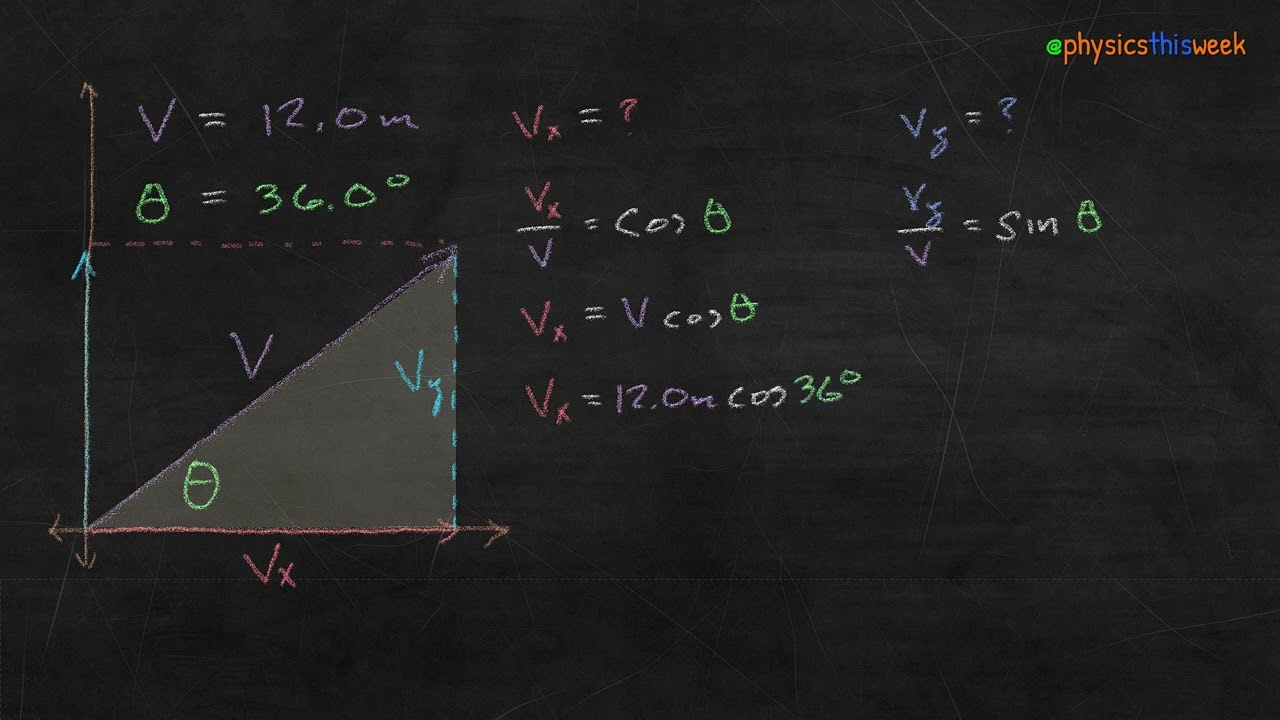 @physicsthisweek
V = 12.0m
θ = 36.0°
V
Vy
θ
Vx
Vx = ?
Vx/V = cos θ
Vx = V cos θ
Vx = 12.0m cos 36°
Vy = ?
Vy/V = sin θ